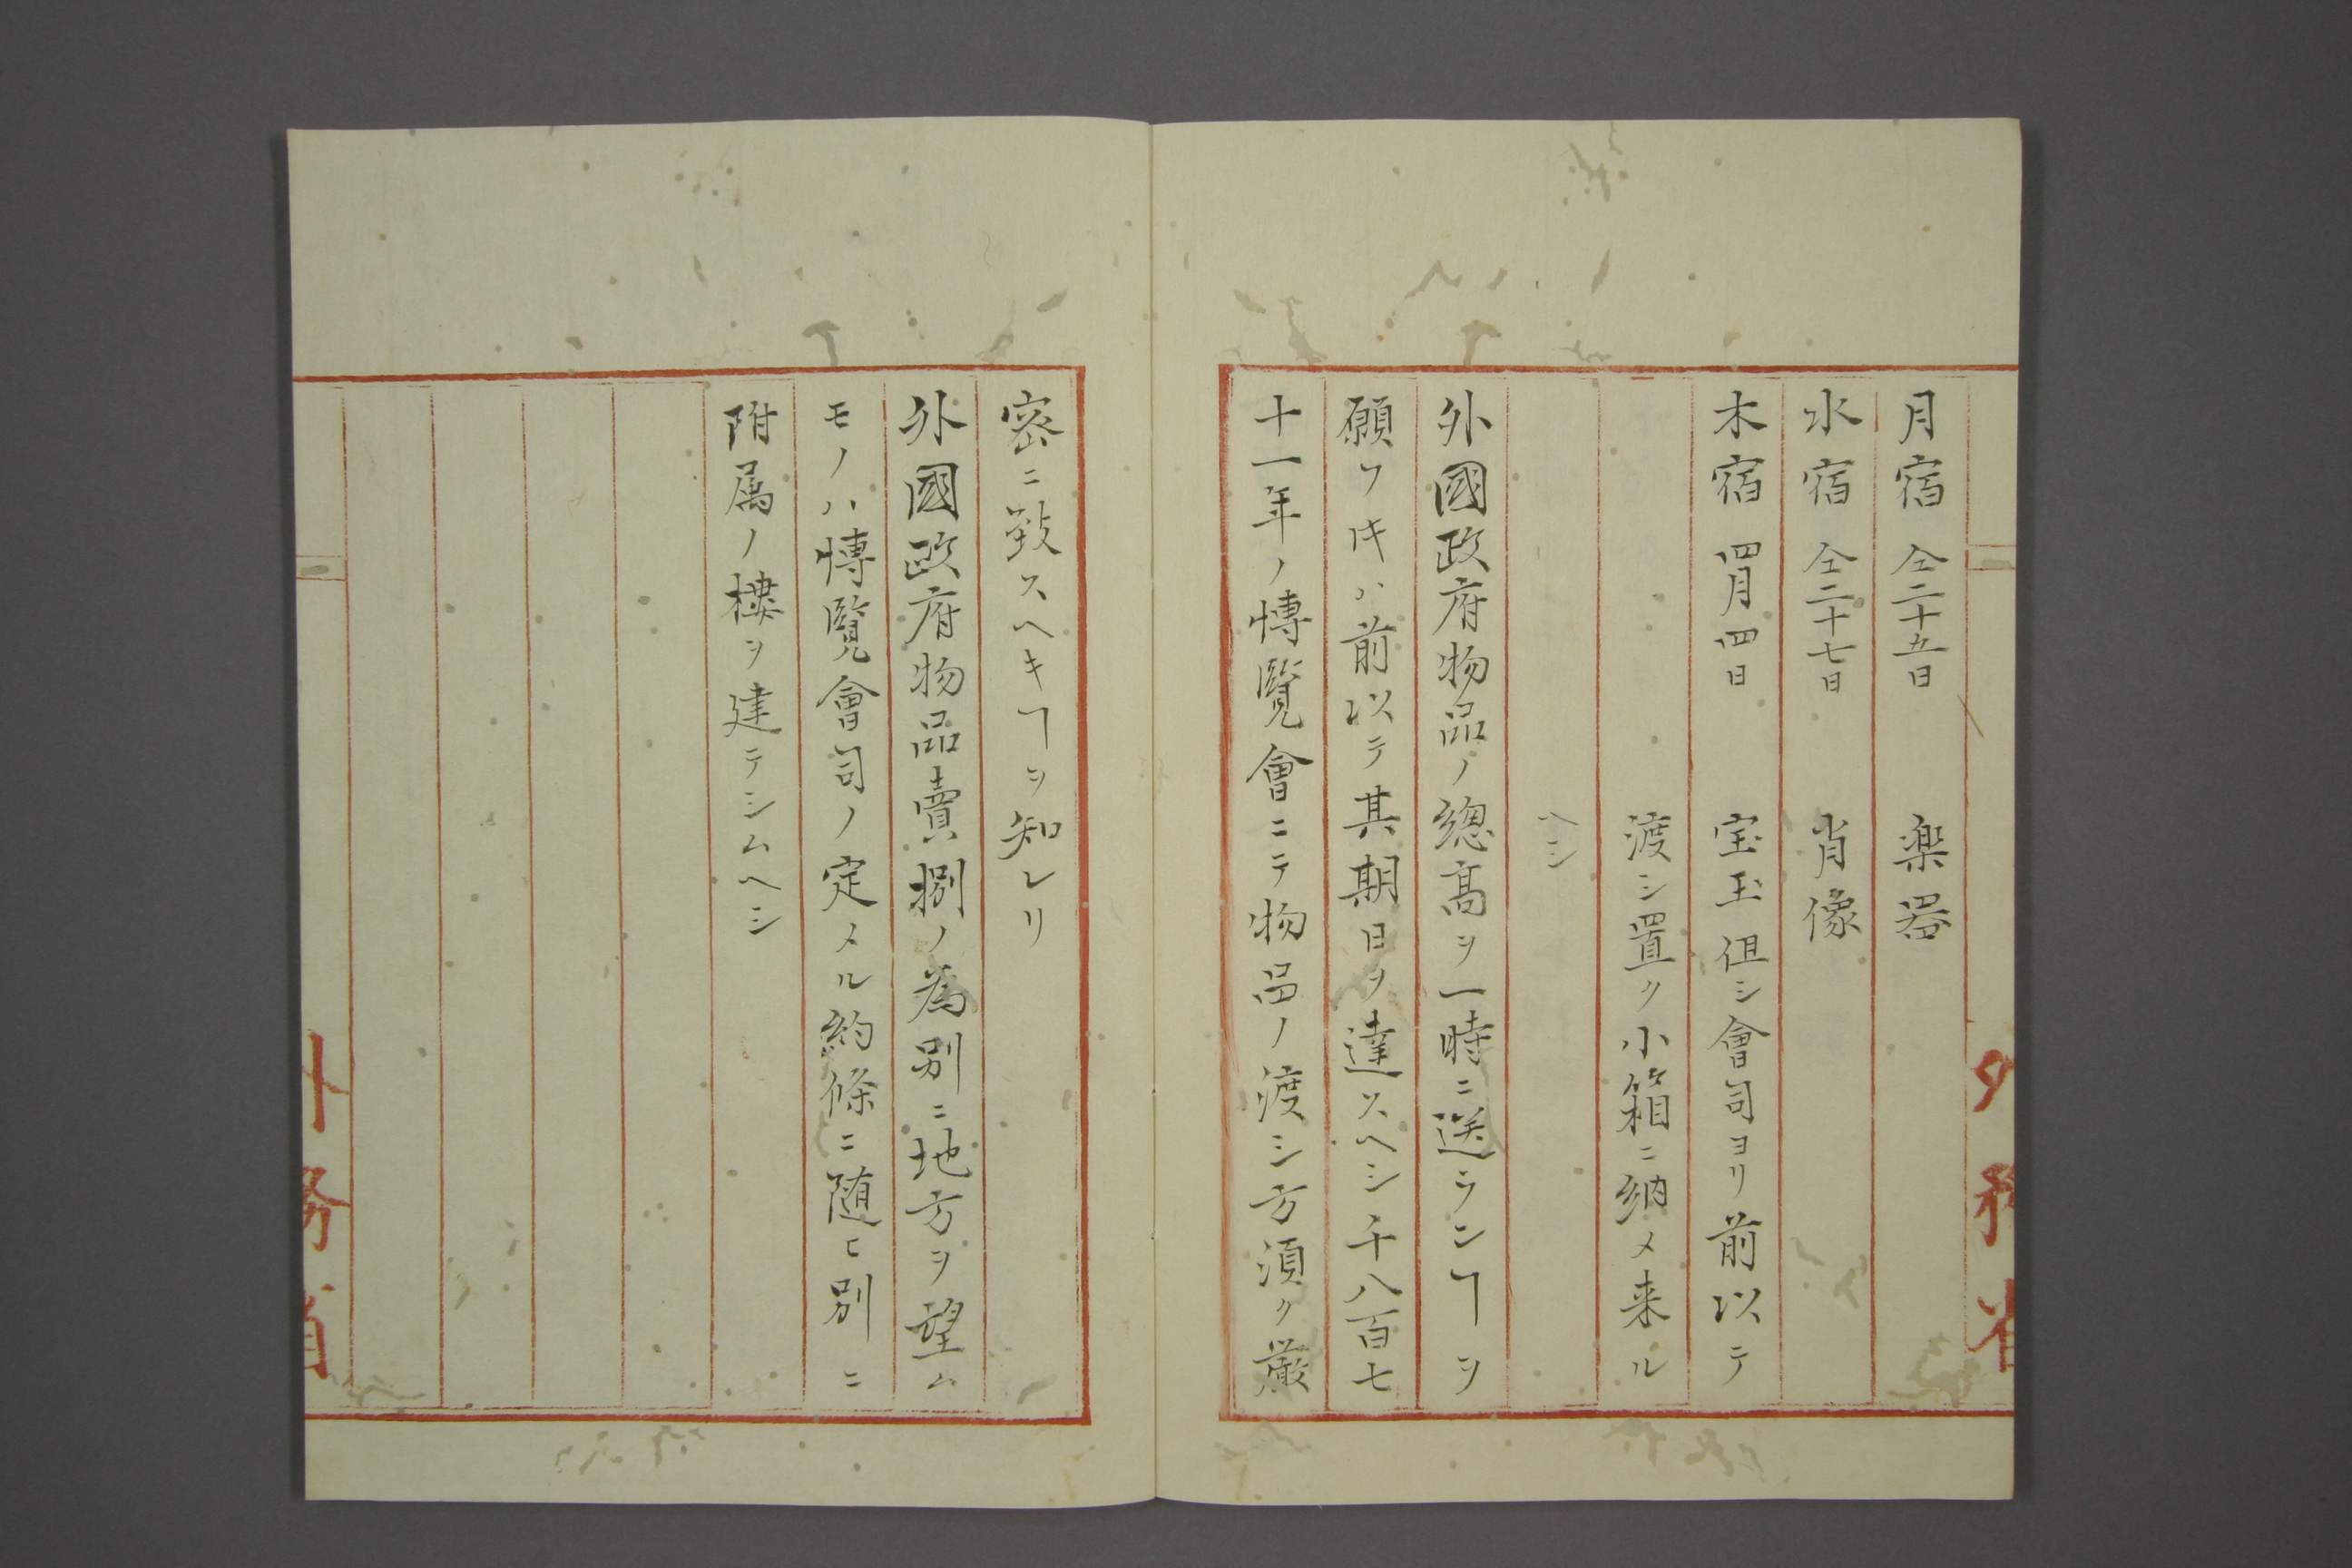 月宿　仝二十五日　楽器
水宿　仝二十七日　肖像
木宿　四月四日　宝玉但シ會司ヨリ前以テ
渡シ置ク小箱ニ納メ来ル
ヘシ
外國政府物品ノ總髙ヲ一時ニ送ランヿヲ
願フ𪜈ハ前以テ其期日ヲ達スヘシ千八百七
十一年ノ博覧會ニテ物品ノ渡シ方須ク嚴
密ニ致スヘキヿヲ知レリ
外國政府物品賣捌ノ為別ニ地方ヲ望ム
モノハ博覧會司ノ定メル約條ニ随ヒ別ニ
附属ノ樓ヲ建テシムヘシ
外務省